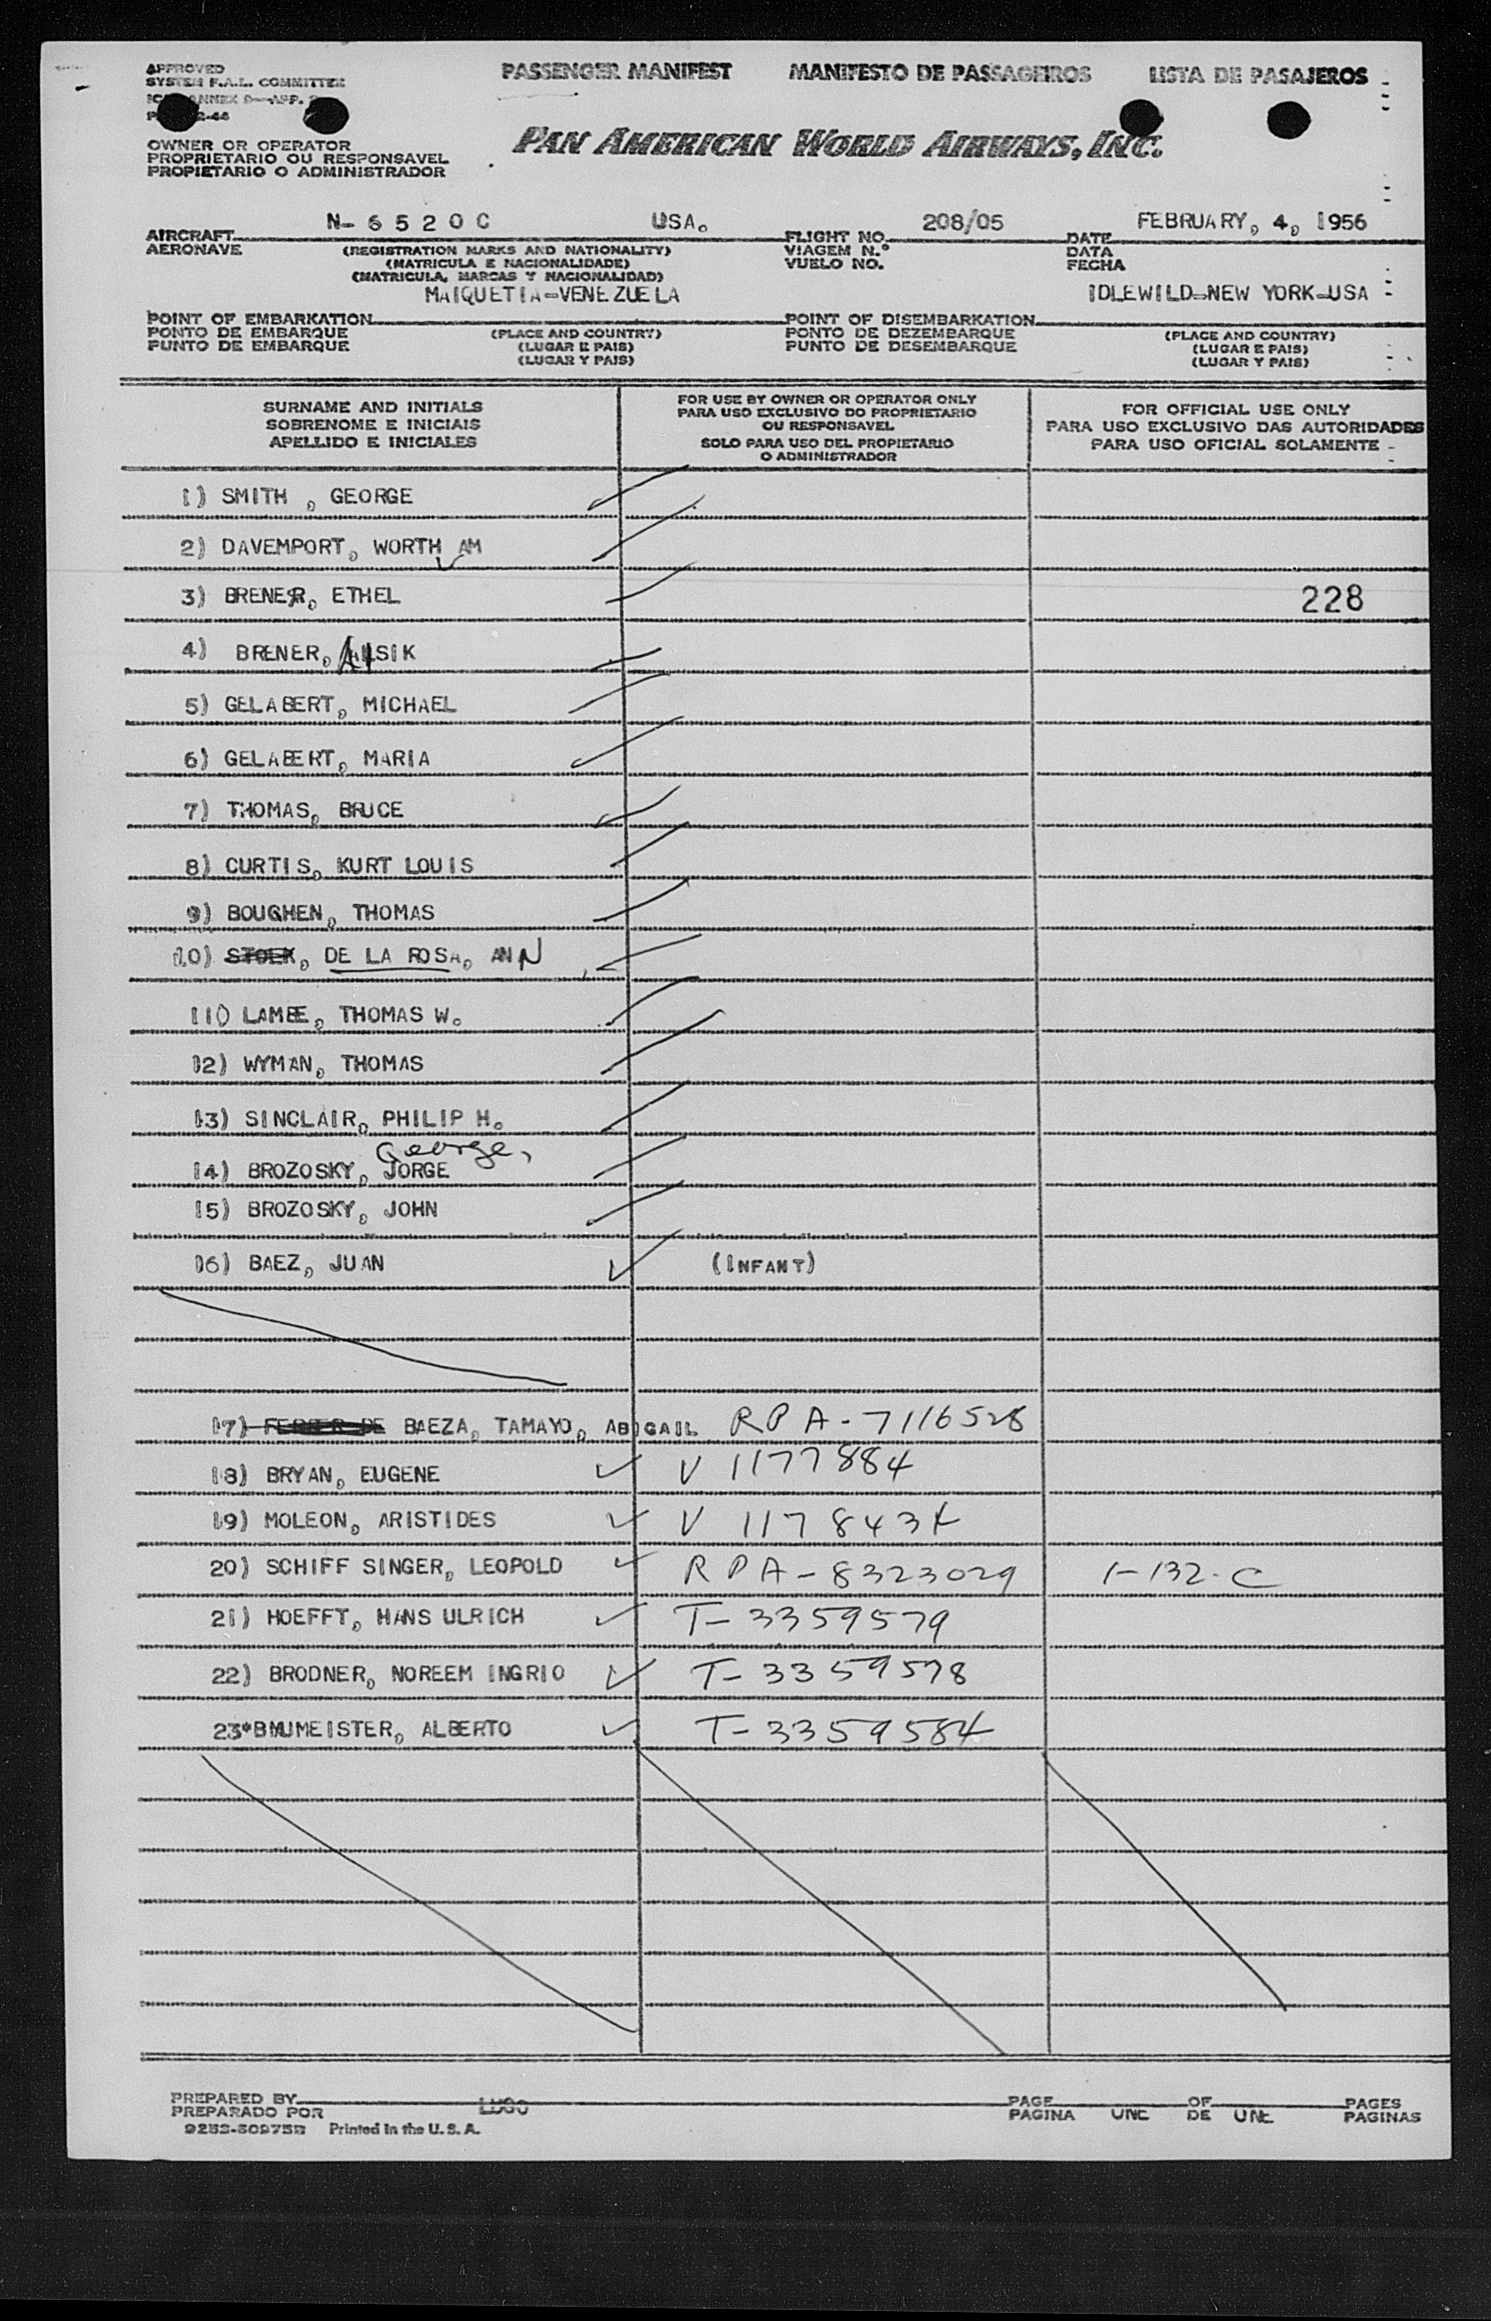 APPROVED
SYSTEM F.A.L. COMMITTEE
PASSENGER MANIFEST MANIFESTO DE PASSAGEIROS LISTA DE PASAJEROS
OWNER OR OPERATOR
PROPRIETARIO OU RESPONSAVEL
PROPIETARIO O ADMINISTRADOR
PAN AMERICAN WORLD AIRWAYS, INC.
N-6520C USA. 208/05 FEBRUARY, 4, 1956
AIRCRAFT FLIGHT NO. DATE
AERONAVE (REGISTRATION MARKS AND NATIONALITY) VIAGEM N.° DATA
(MATRICULA E NACIONALIDADE) VUELO NO. FECHA
(MATRICULA, MARCAS Y NACIONALIDAD)
MAIQUETIA-VENEZUELA IDLEWILD-NEW YORK-USA
POINT OF EMBARKATION POINT OF DISEMBARKATION
PONTO DE EMBARQUE (PLACE AND COUNTRY) PONTO DE DEZEMBARQUE (PLACE AND COUNTRY)
PUNTO DE EMBARQUE (LUGAR E PAIS) PUNTO DE DESEMBARQUE (LUGAR E PAIS)
(LUGAR Y PAIS) (LUGAR Y PAIS)
SURNAME AND INITIALS
SOBRENOME E INICIAIS
APELLIDO E INICIALES
FOR USE BY OWNER OR OPERATOR ONLY
PARA USO EXCLUSIVO DO PROPRIETARIO
OU RESPONSAVEL
SOLO PARA USO DEL PROPIETARIO
O ADMINISTRADOR
FOR OFFICIAL USE ONLY
PARA USO EXCLUSIVO DAS AUTORIDADES
PARA USO OFICIAL SOLAMENTE
1) SMITH, GEORGE
2) DAVEMPORT, WORTH AM
3) BRENER, ETHEL 228
4) BRENER, SIK
5) GELABERT, MICHAEL
6) GELABERT, MARIA
7) THOMAS, BRUCE
8) CURTIS, KURT LOUIS
9) BOUGHEN, THOMAS
10) STOEK, DE LA ROSA, ANN
11) LAMBE, THOMAS W.
12) WYMAN, THOMAS
13) SINCLAIR, PHILIP H.
George,
14) BROZOSKY, JORGE
15) BROZOSKY, JOHN
16) BAEZ, JUAN (INFANT)
17) BAEZA, TAMAYO, ABIGAIL RPA-7116528
18) BRYAN, EUGENE V 1177884
19) MOLEON, ARISTIDES V 1178434
20) SCHIFF SINGER, LEOPOLD RPA-8323029 1-132-C
21) HOEFFT, HANS ULRICH T-3359579
22) BRODNER, NOREEM INGRIO T-3359578
23) BMUMEISTER, ALBERTO T-3359584
PREPARED BY LUGO PAGE OF PAGES
PREPARADO POR PAGINA UNE DE UNE PAGINAS
Printed in the U.S.A.